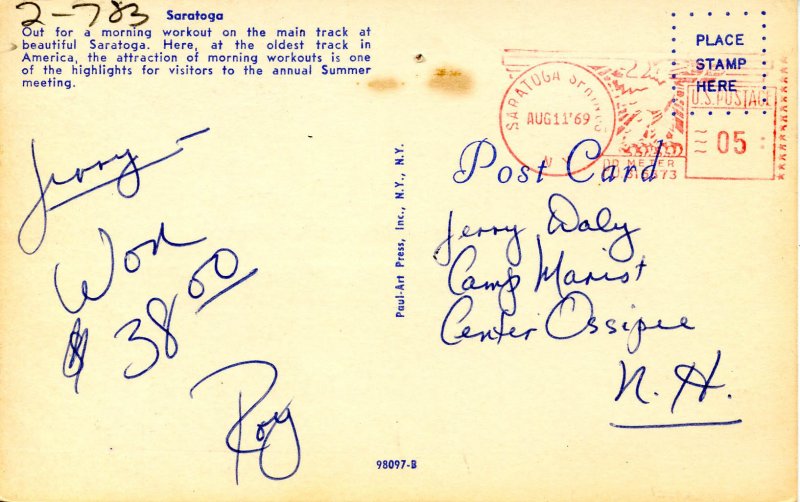 2-783
Saratoga
Out for a morning workout on the main track at
beautiful Saratoga. Here, at the oldest track in
America, the attraction of morning workouts is one
of the highlights for visitors to the annual Summer
meeting.
PLACE
STAMP
HERE
SARATOGA SPRINGS
AUG 11 '69
N Y
U.S. POSTAGE
05
METER
Post Card
Jerry –
Won
$ 38 00
Roy
Paul-Art Press, Inc., N.Y., N.Y.
Jerry Daly
Camp Marist
Center Ossipee
N. H.
98097-B